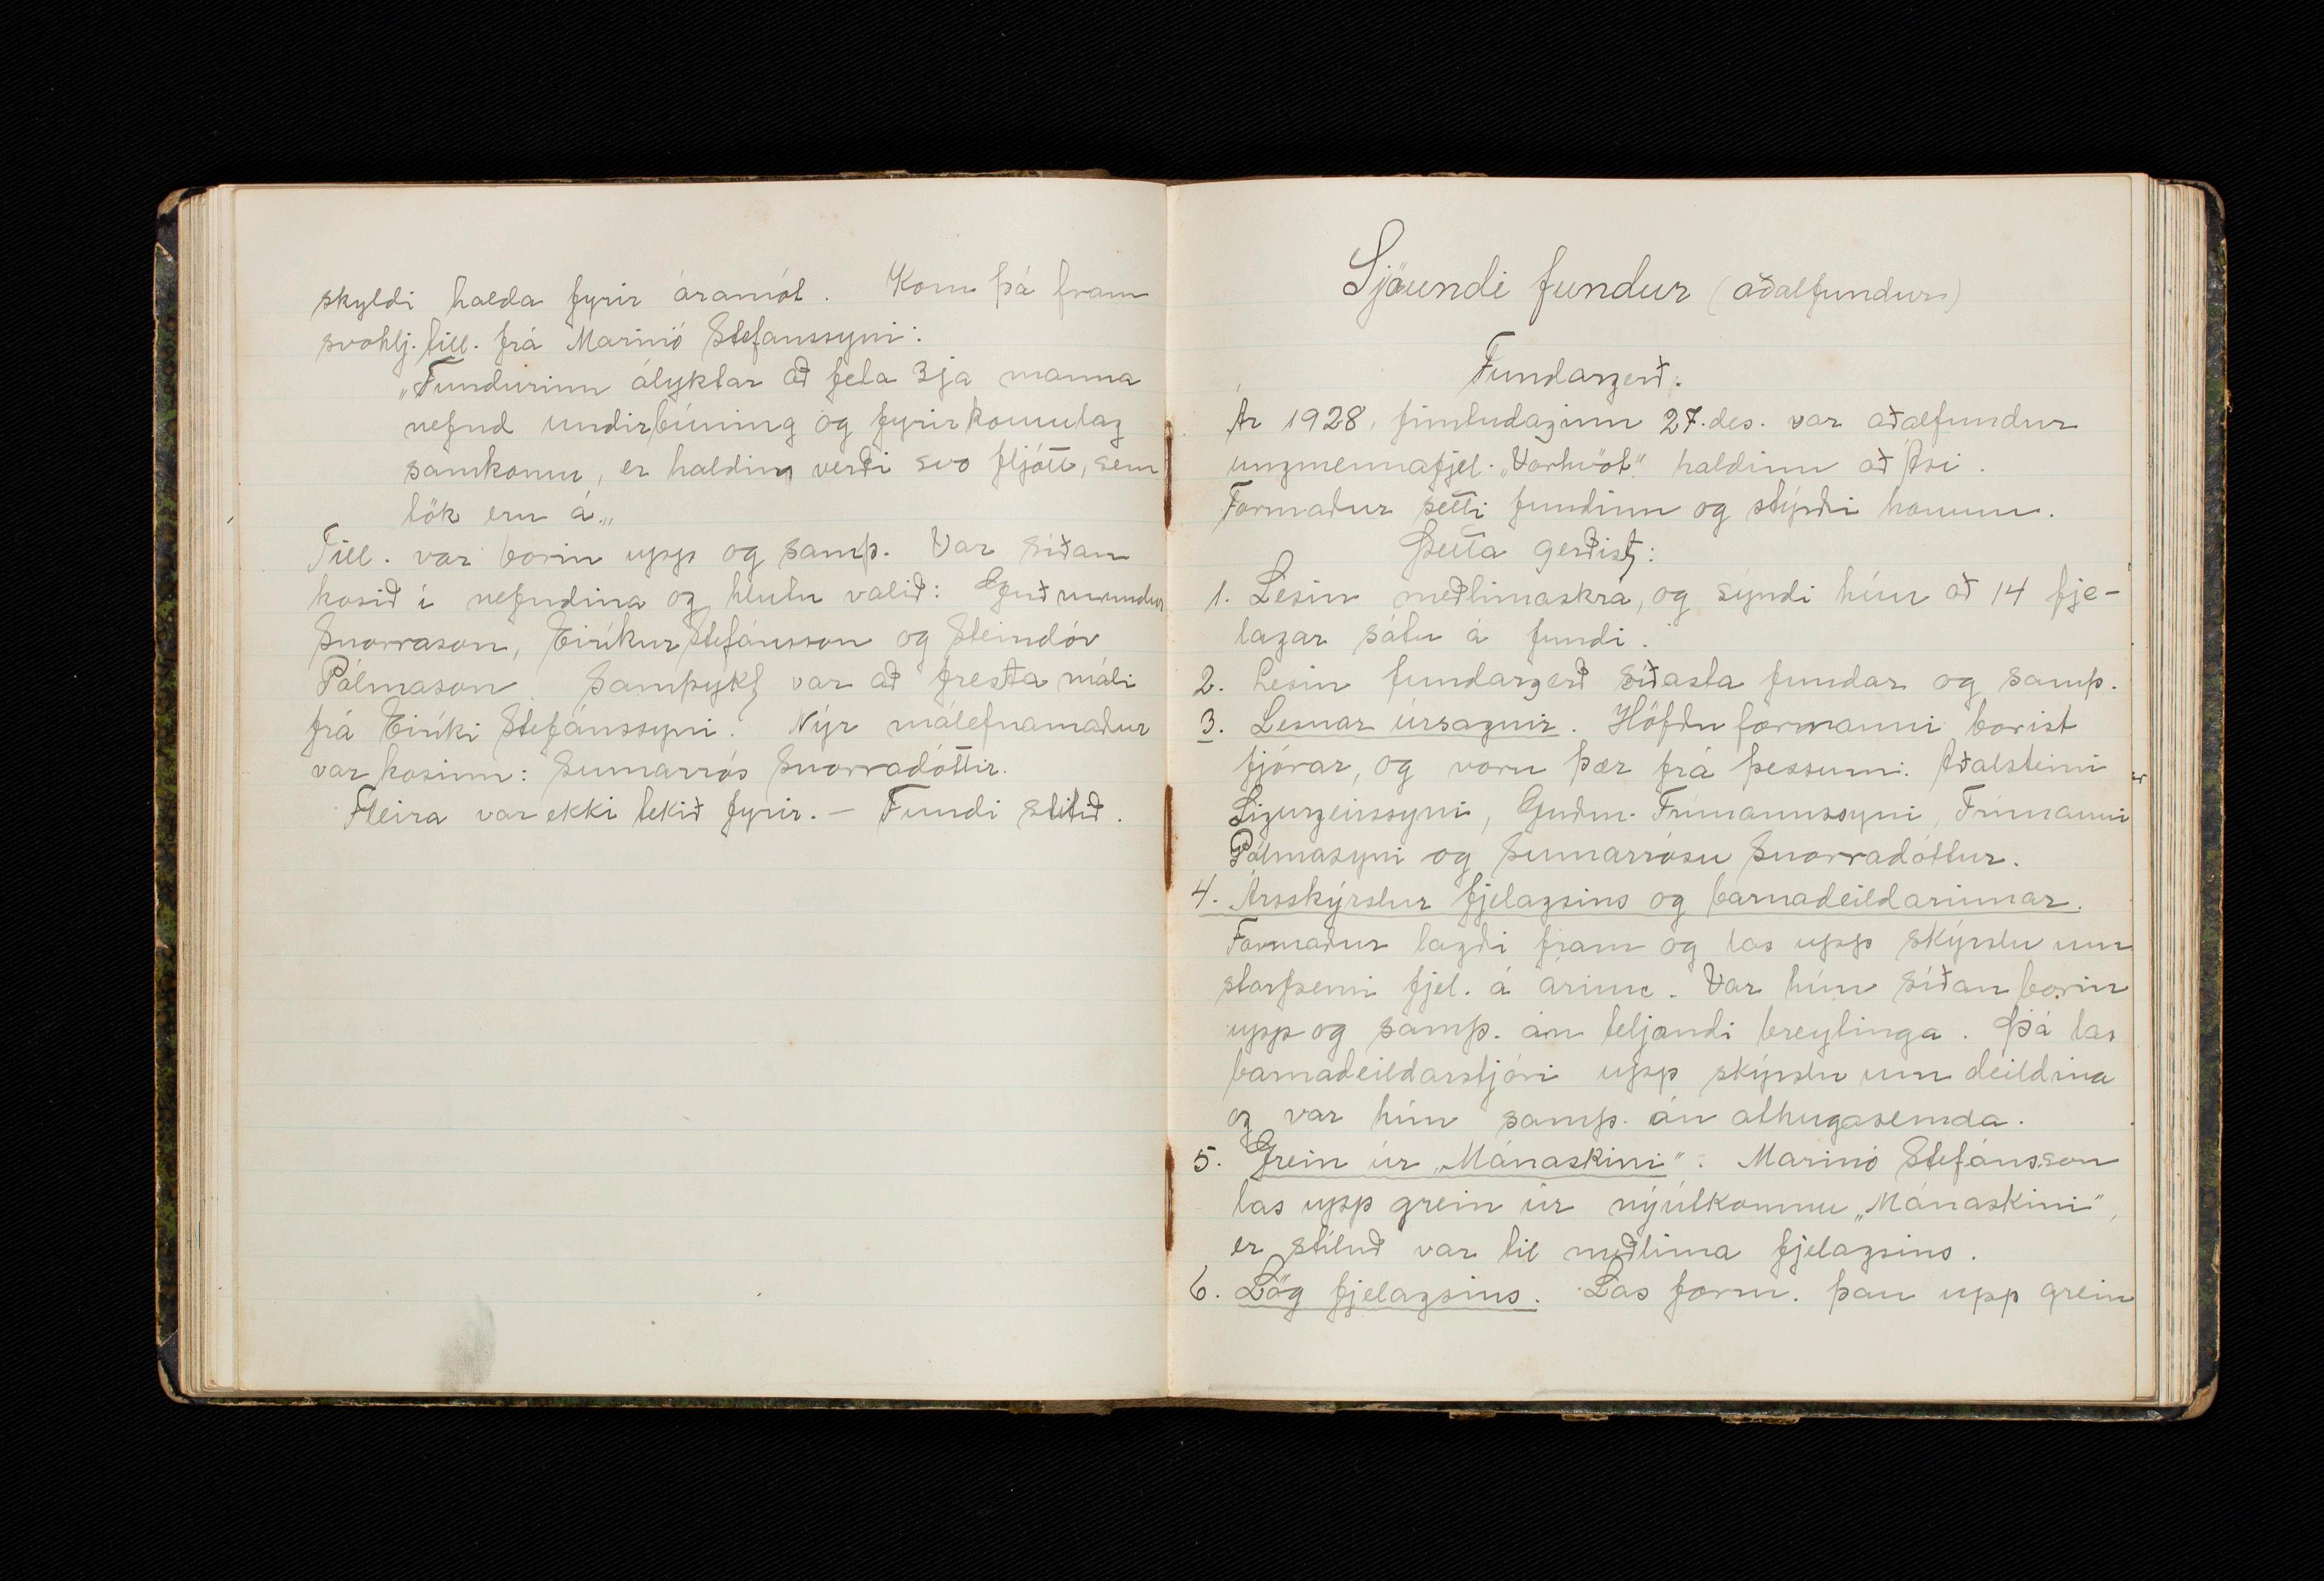 skyldi halda fyrir áramót. Kom þá fram
svohlj. till. frá Marinó Stefánssyni:
„Fundurinn ályktar að fela 3ja manna
nefnd undirbúning og fyrirkomulag
samkomu, er haldin verði svo fljótt, sem
tök eru á.„
Till. var borin upp og samþ. Var síðan
kosið í nefndina og hlutu valið: Guðmundur
Snorrason, Eiríkur Stefánsson og Steindór
Pálmason. Samþykt var að fresta máli
frá Eiríki Stefánssyni. Nýr málefnamaður
var kosinn: Sumarrós Snorradóttir.
Fleira var ekki tekið fyrir. – Fundi slitið.
Sjöundi fundur (aðalfundur)
Fundargerð.
Ár 1928, fimtudaginn 27. des. var aðalfundur
ungmennafjel. „Vorhvöt" haldinn að Ási.
Formaður setti fundinn og stýrði honum.
Þetta gerðist:
1. Lesin meðlimaskrá, og sýndi hún að 14 fje-
lagar sátu á fundi.
2. Lesin fundargerð síðasta fundar og samþ.
3. Lesnar úrsagnir. Höfðu formanni borist
fjórar, og voru þær frá þessum: Aðalsteini
Sigurgeirssyni, Guðm. Frímannssyni, Frímanni
Pálmasyni og Sumarrósu Snorradóttur.
4. Ársskýrslur fjelagsins og barnadeildarinnar.
Formaður lagði fram og las upp skýrslu um
starfsemi fjel. á árinu. Var hún síðan borin
upp og samþ. án teljandi breytinga. Þá las
barnadeildarstjóri upp skýrslu um deildina
og var hún samþ. án athugasemda.
5. Grein úr „Mánaskini". Marinó Stefánsson
las upp grein úr nýútkomnu „Mánaskini",
er stíluð var til meðlima fjelagsins.
6. Lög fjelagsins. Las form. þau upp grein